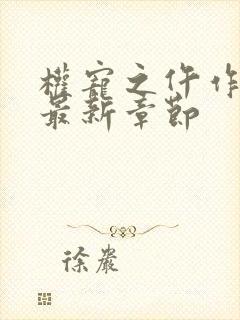 權寵之仵作
最新章節
徐巖